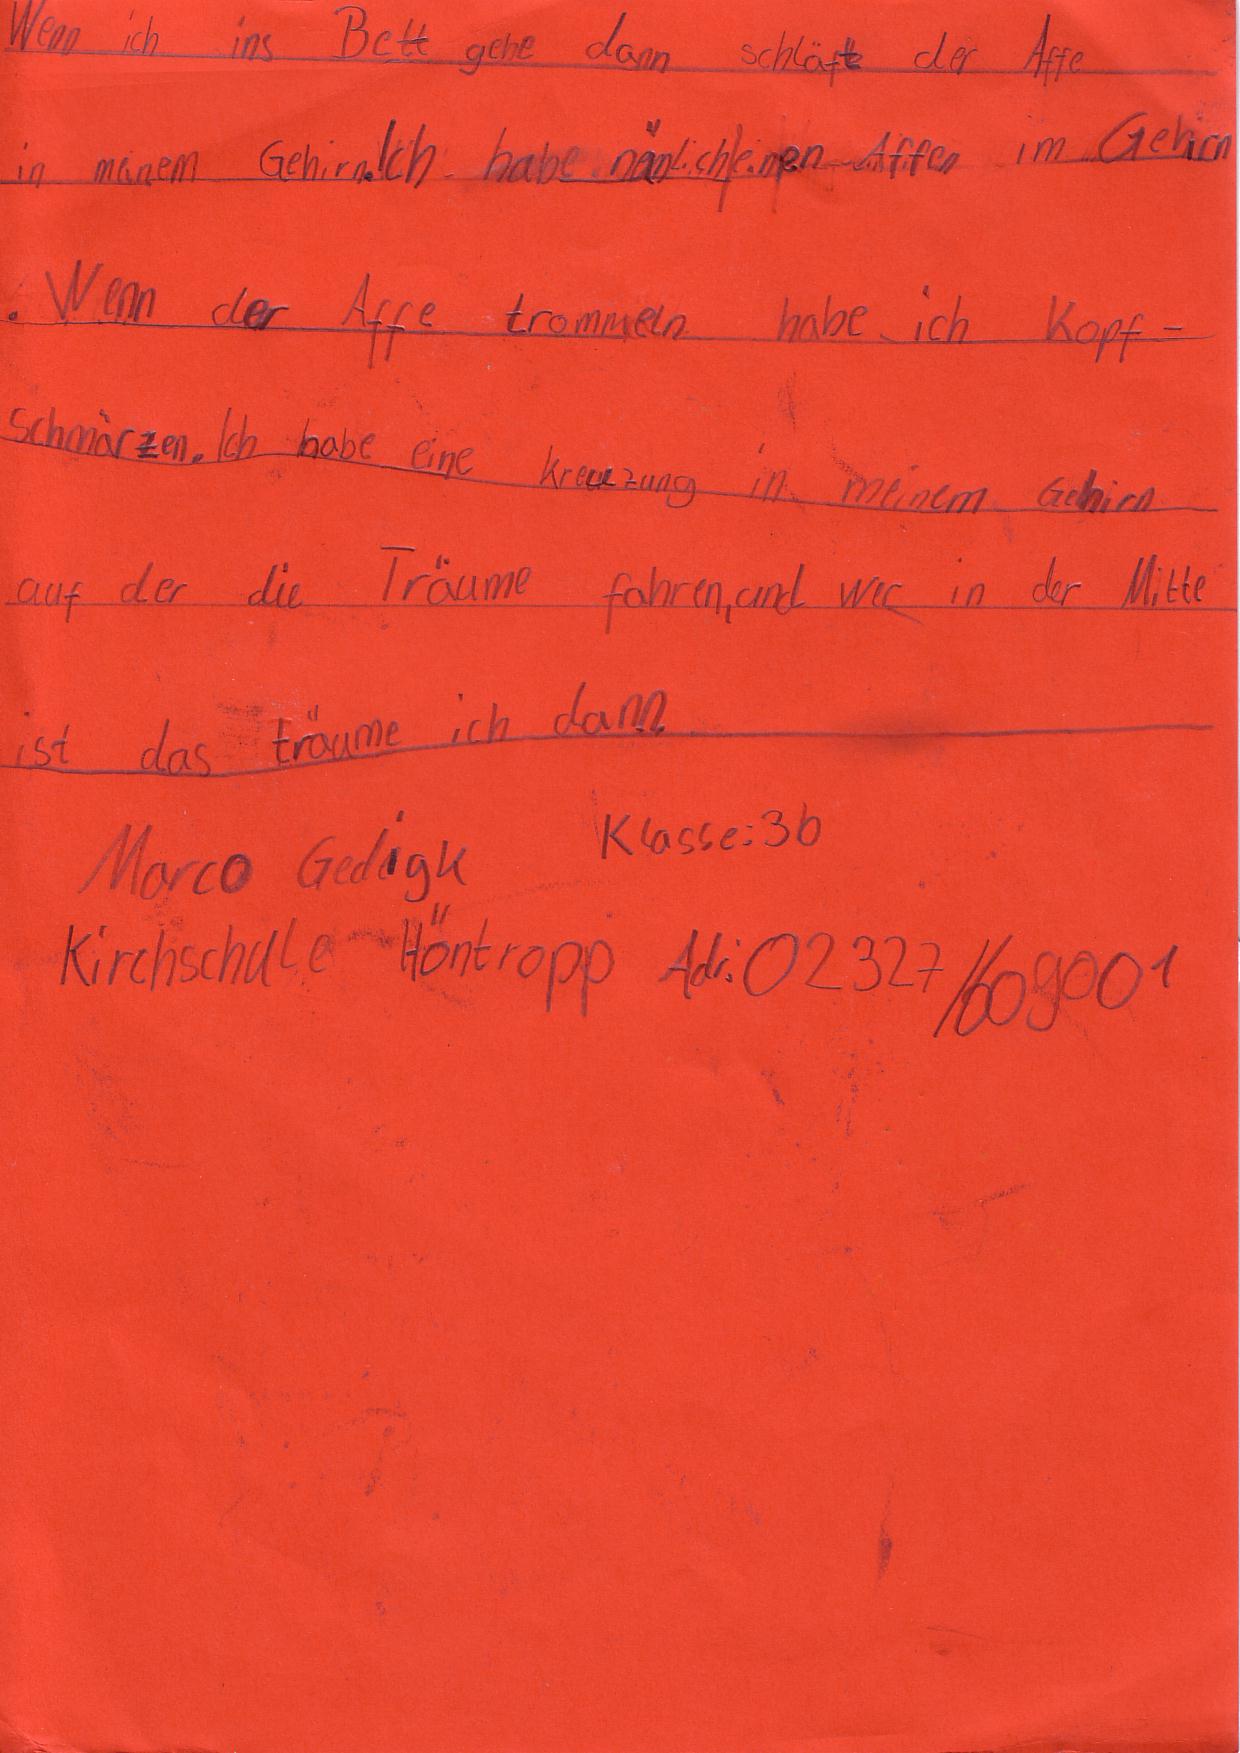 Wenn ich ins Bett gehe dann schläft der Affe
in meinem Gehirn.Ich habe nänlich einen Affen im Gehirn
. Wenn der Affe trommeln habe ich Kopf-
schmärzen. Ich habe eine Kreuzung in meinem Gehirn
auf der die Träume fahren,und wer in der Mitte
ist das träume ich dann
Marco Gedigk Klasse:3b
Kirchschule Höntropp Adr:02327/609001